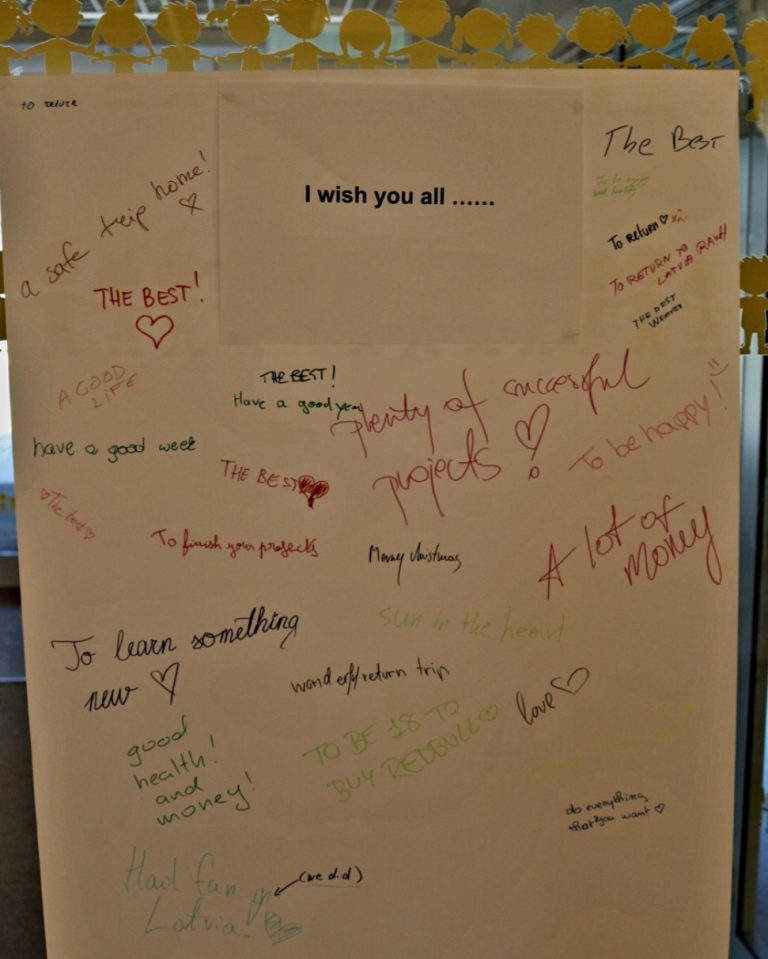 to return
The Best
I wish you all ......
a safe trip home!
To return x2
TO RETURN TO
LATVIA
THE BEST!
THE BEST
WEATHER
A GOOD
LIFE
THE BEST!
Have a good year
plenty of successful
projects!
To be happy!
have a good week
THE BEST
The best
To finish your projects
Merry christmas
A lot of
money
sun in the heart
To learn something
new
wonderful return trip
love
TO BE 18 TO
BUY REDBULL
good
health!
and
money!
do everything
that you want
Had fun in
Latvia!
(we did)